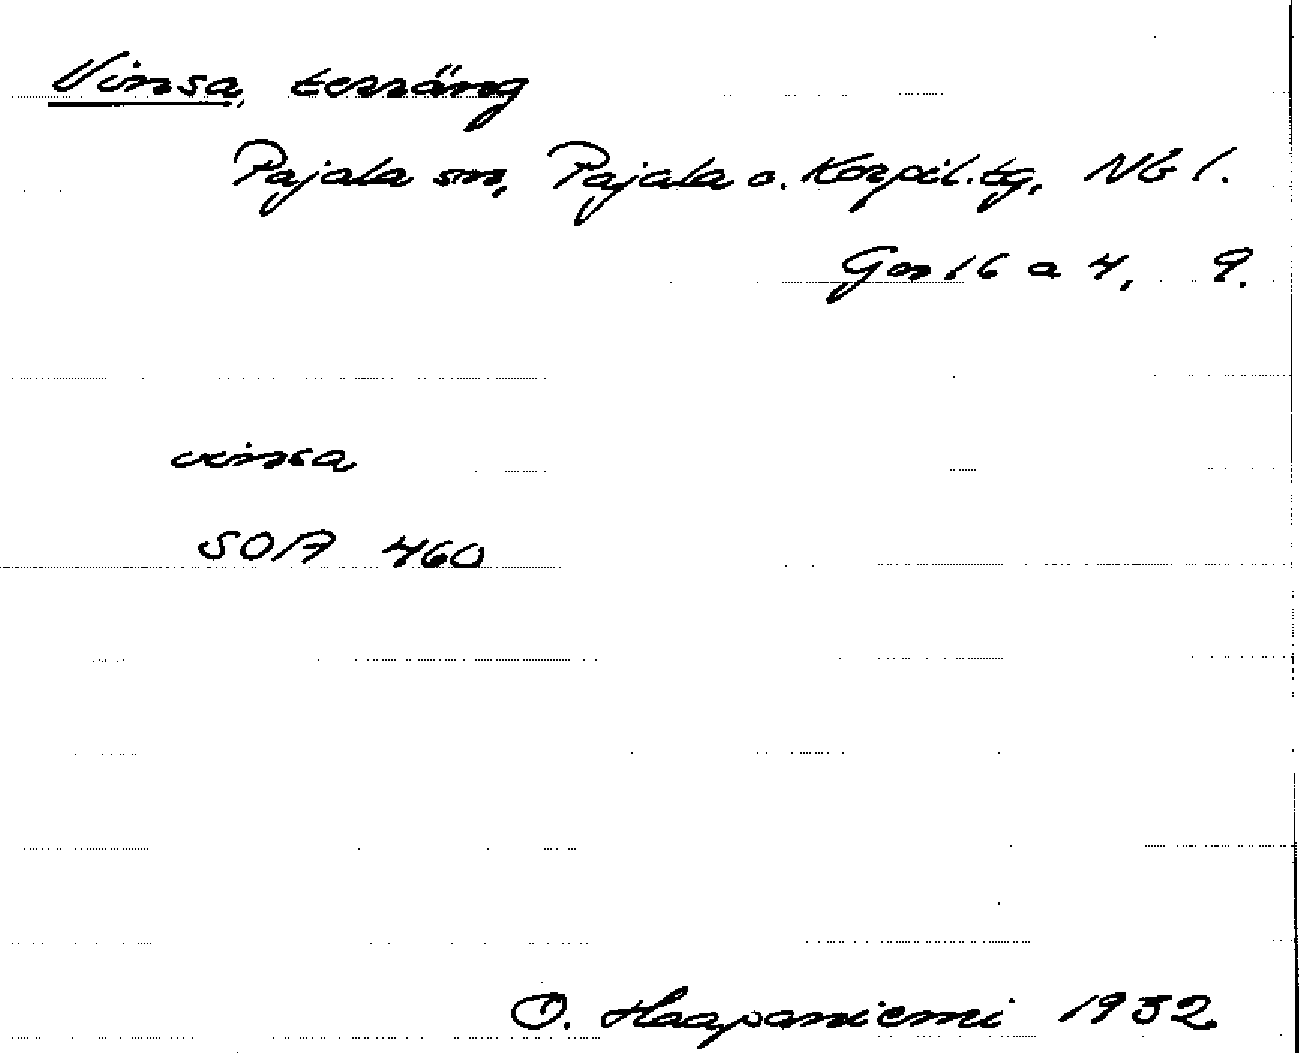 Vinsa, terräng
Pajala sn, Pajala o. Korpil. tg, Nb l.
Gen 16 a 4, 9.
vinsa
SOA 460
O. Haapaniemi 1932